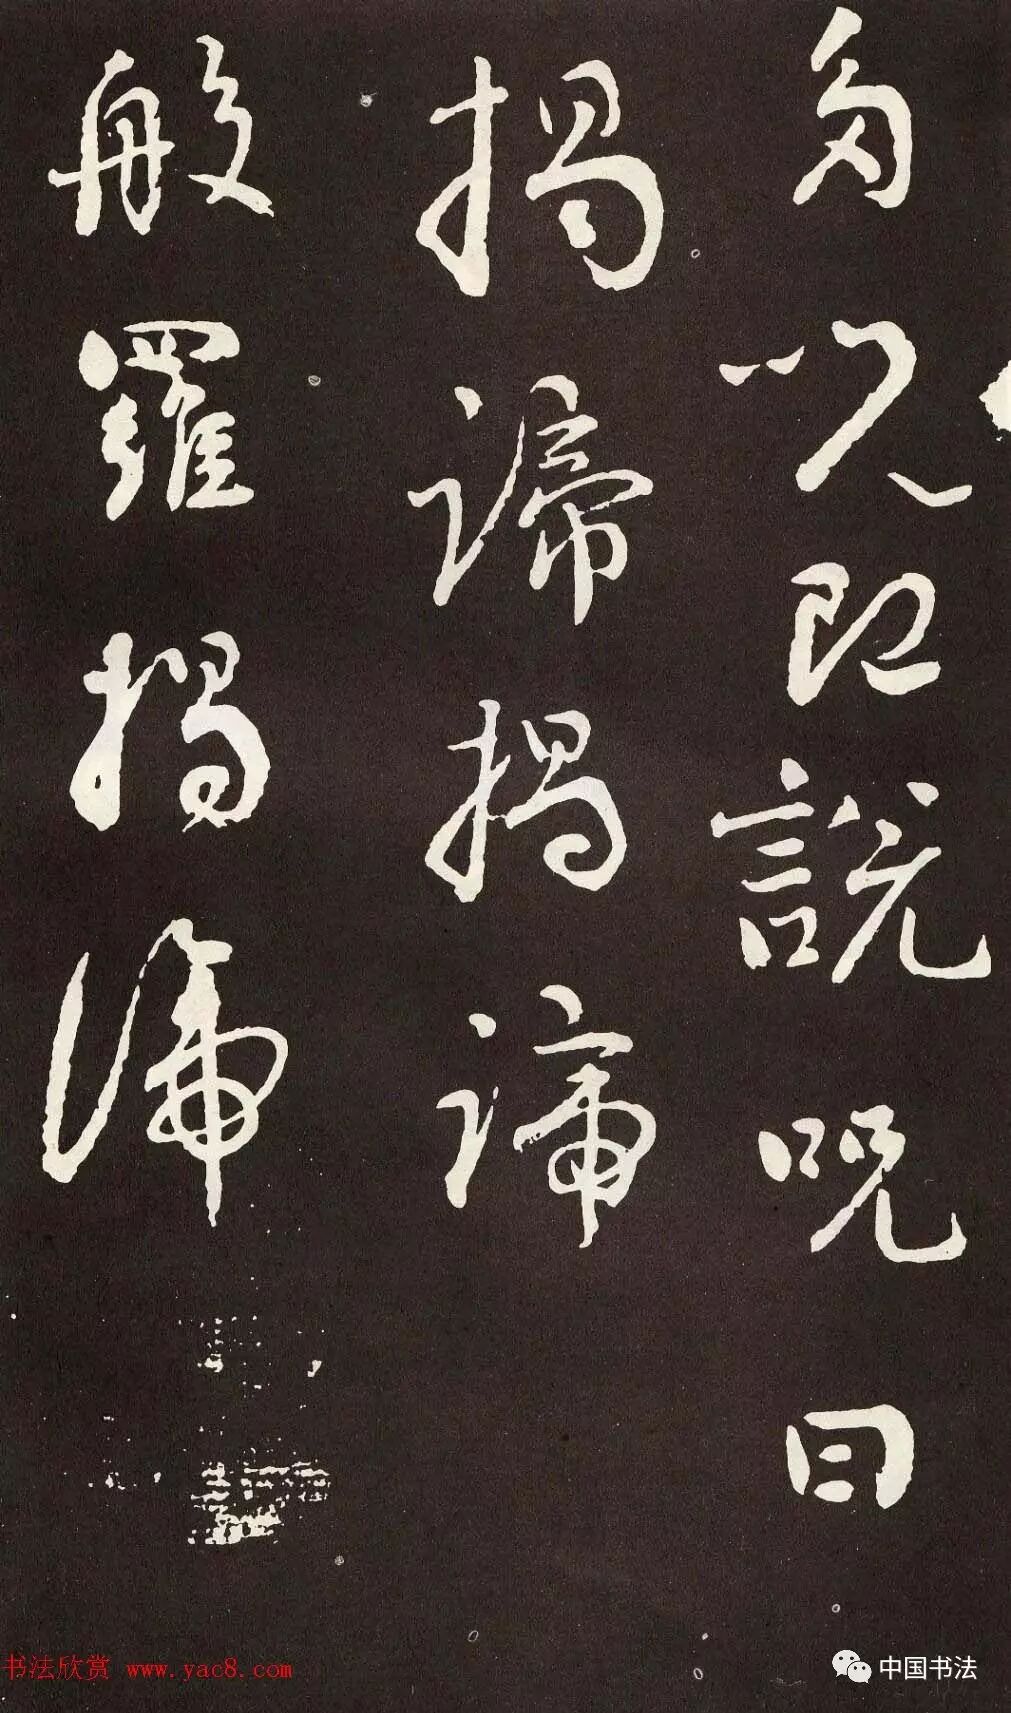 多呪即說呪曰
揭諦揭諦
般羅揭諦
书法欣赏 www.yac8.com
中国书法